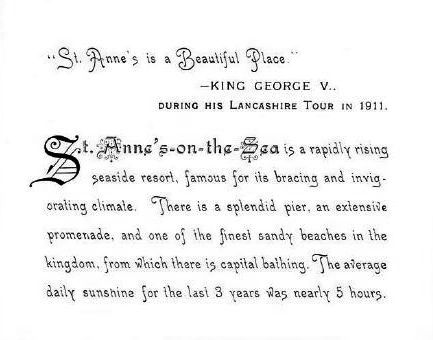 "St. Anne's is a Beautiful Place."
—KING GEORGE V..
DURING HIS LANCASHIRE TOUR IN 1911.
St. Anne's-on-the-Sea is a rapidly rising
seaside resort, famous for its bracing and invig-
orating climate. There is a splendid pier, an extensive
promenade, and one of the finest sandy beaches in the
kingdom, from which there is capital bathing. The average
daily sunshine for the last 3 years was nearly 5 hours.